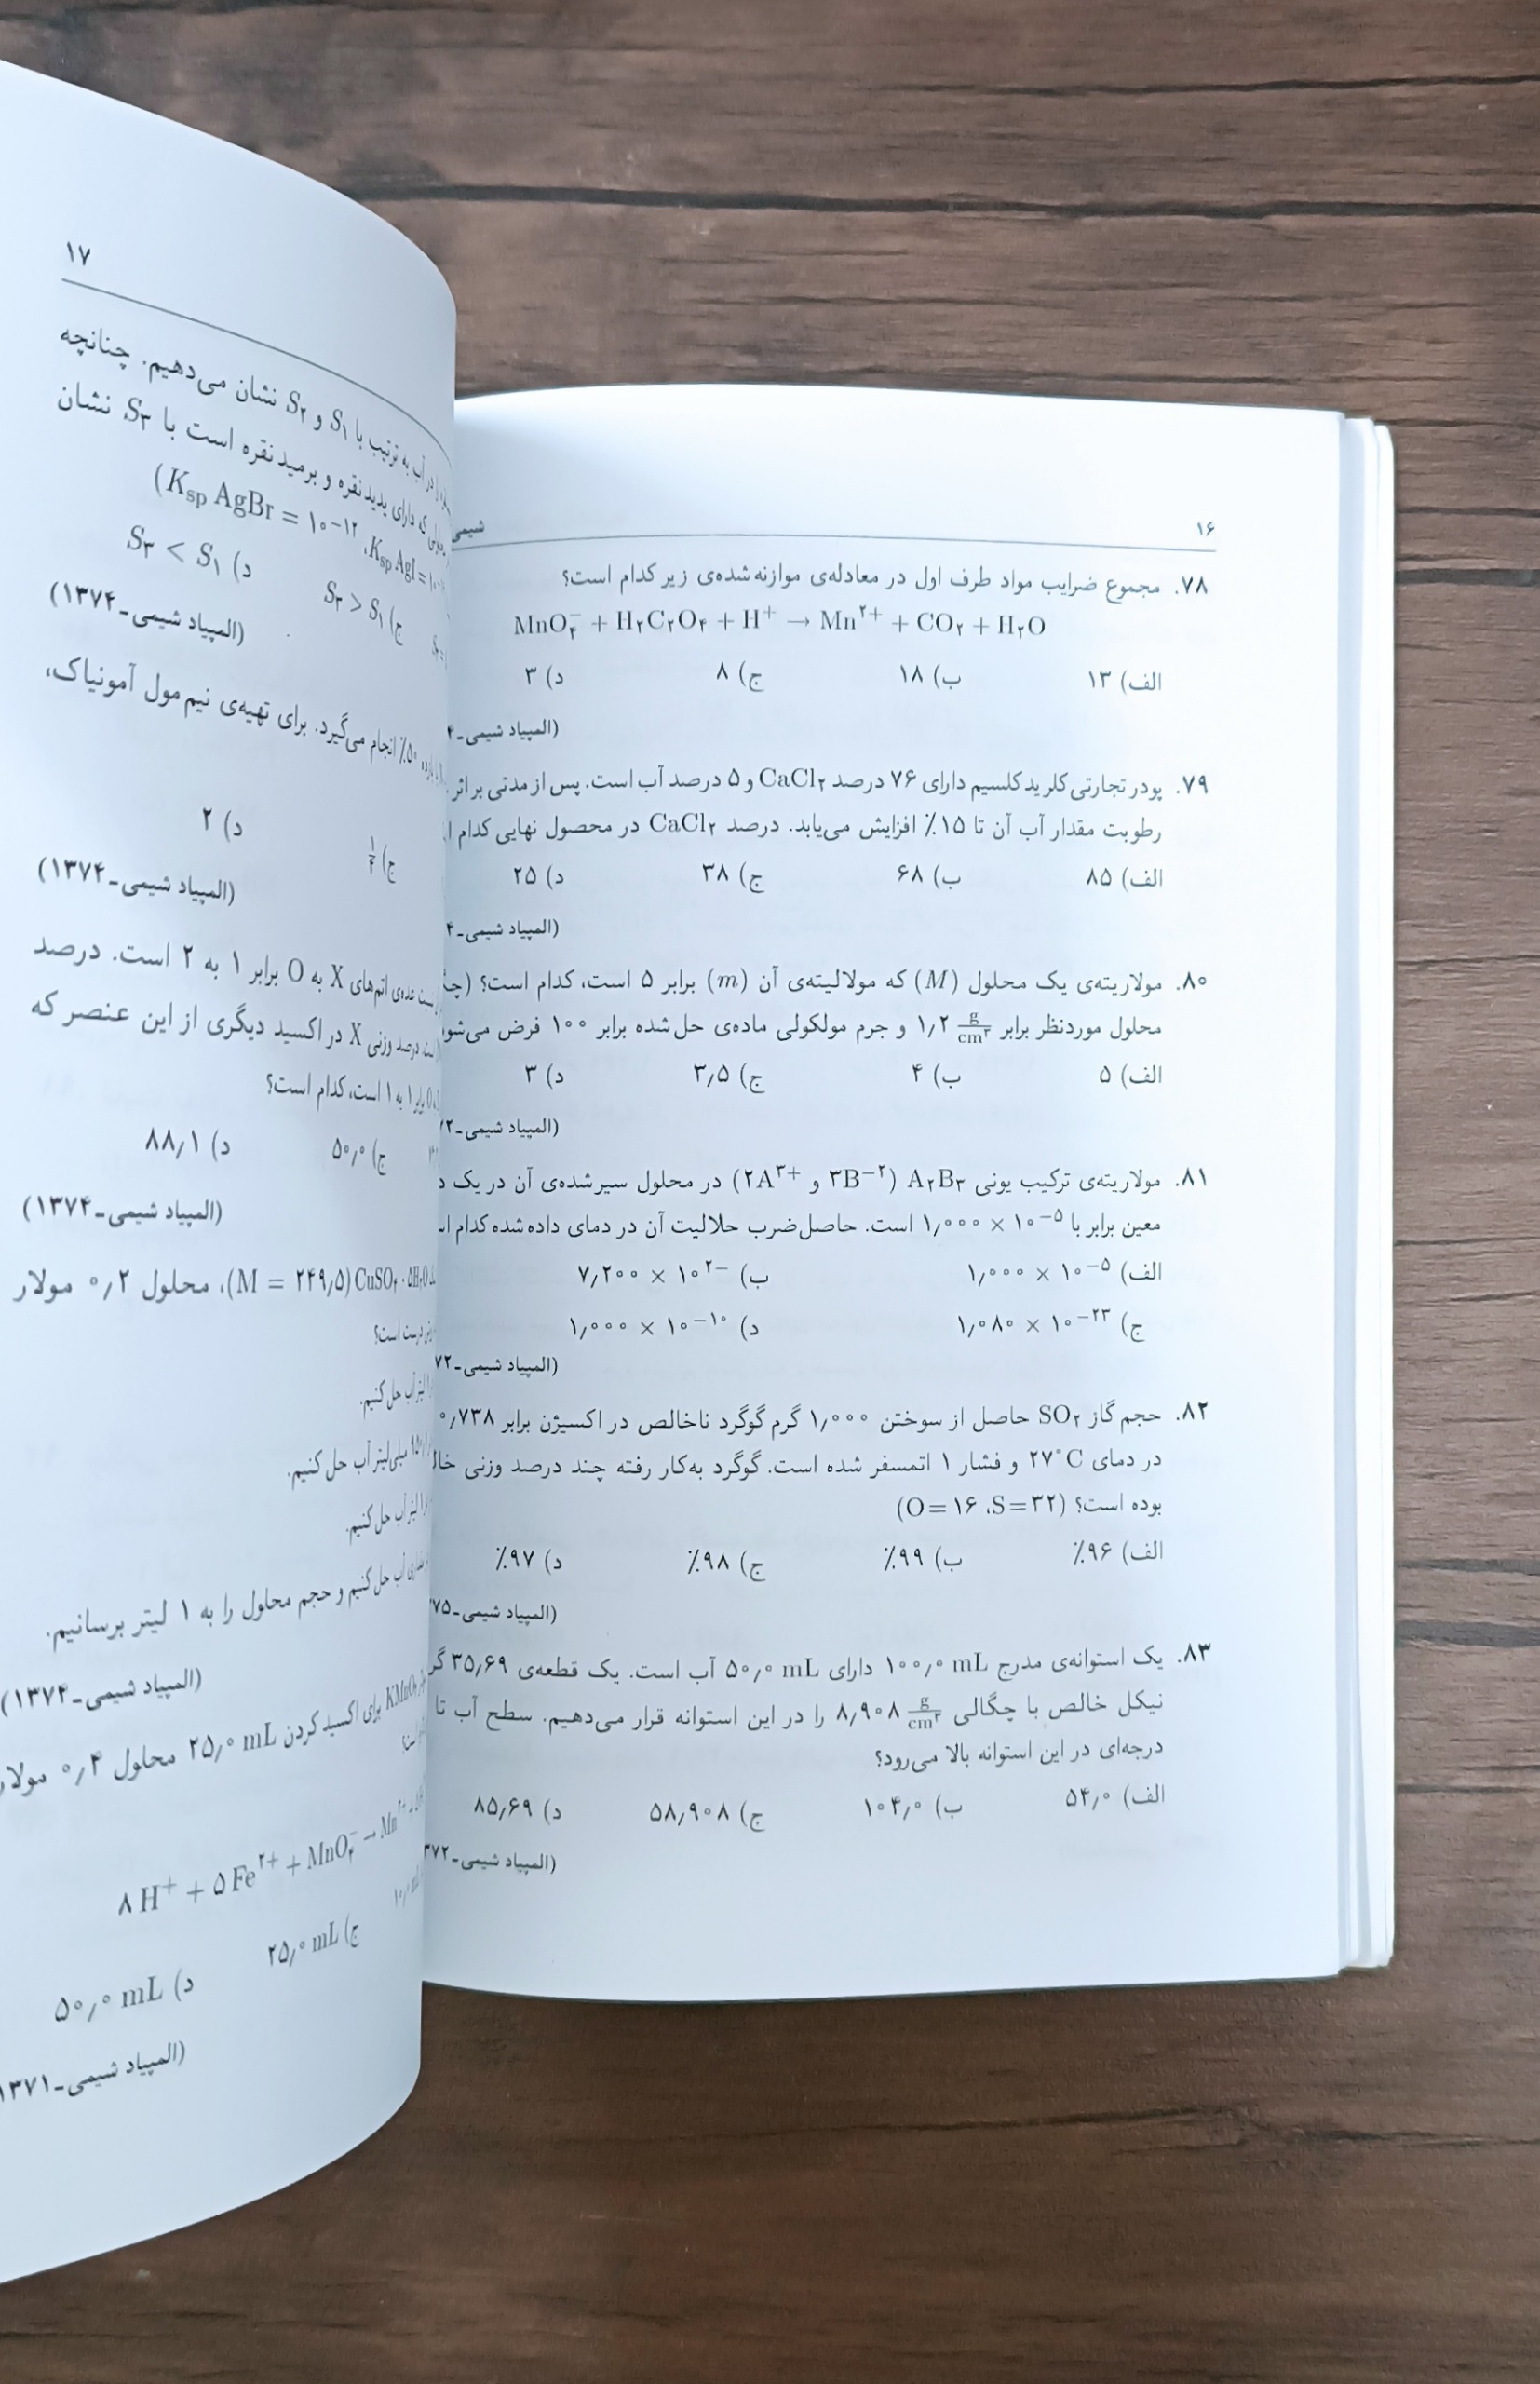 ۱۶
شیمی
۷۸. مجموع ضرایب مواد طرف اول در معادله‌ی موازنه‌شده‌ی زیر کدام است؟
MnO₄⁻ + H₂C₂O₄ + H⁺ → Mn²⁺ + CO₂ + H₂O
الف) ۱۳ ب) ۱۸ ج) ۸ د) ۳
(المپیاد شیمی-
۷۹. پودر تجارتی کلرید کلسیم دارای ۷۶ درصد CaCl₂ و ۵ درصد آب است. پس از مدتی بر اثر
رطوبت مقدار آب آن تا ۱۵٪ افزایش می‌یابد. درصد CaCl₂ در محصول نهایی کدام
الف) ۸۵ ب) ۶۸ ج) ۳۸ د) ۲۵
(المپیاد شیمی-
۸۰. مولاریته‌ی یک محلول (M) که مولالیته‌ی آن (m) برابر ۵ است، کدام است؟
محلول موردنظر برابر ۱٫۲ g/cm³ و جرم مولکولی ماده‌ی حل‌شده برابر ۱۰۰ فرض
الف) ۵ ب) ۴ ج) ۳٫۵ د) ۳
(المپیاد شیمی-
۸۱. مولاریته‌ی ترکیب یونی A₂B₃ (۳B⁻² و ۲A³⁺) در محلول سیرشده‌ی آن در یک
معین برابر با ۱٫۰۰۰ × ۱۰⁻⁵ است. حاصل‌ضرب حلالیت آن در دمای داده شده کدام
الف) ۱٫۰۰۰ × ۱۰⁻⁵ ب) ۷٫۲۰۰ × ۱۰²⁻
ج) ۱٫۰۸۰ × ۱۰⁻²³ د) ۱٫۰۰۰ × ۱۰⁻¹⁰
(المپیاد شیمی-
۸۲. حجم گاز SO₂ حاصل از سوختن ۱٫۰۰۰ گرم گوگرد ناخالص در اکسیژن برابر ۰٫۷۳۸
در دمای ۲۷°C و فشار ۱ اتمسفر شده است. گوگرد به‌کار رفته چند درصد وزنی
بوده است؟ (O=۱۶ ،S=۳۲)
الف) ۹۶٪ ب) ۹۹٪ ج) ۹۸٪ د) ۹۷٪
(المپیاد شیمی-
۸۳. یک استوانه‌ی مدرج ۱۰۰٫۰ mL دارای ۵۰٫۰ mL آب است. یک قطعه‌ی ۳۵٫۶۹
نیکل خالص با چگالی ۸٫۹۰۸ g/cm³ را در این استوانه قرار می‌دهیم. سطح آب تا
درجه‌ای در این استوانه بالا می‌رود؟
الف) ۵۴٫۰ ب) ۱۰۴٫۰ ج) ۵۸٫۹۰۸ د) ۸۵٫۶۹
(المپیاد شیمی-
۱۷
در آب به ترتیب با S₁ و S₂ نشان می‌دهیم. چنانچه
که دارای یدید نقره و برمید نقره است با S₃ نشان
(K_sp AgBr = ۱۰⁻¹² ،K_sp AgI =
ج) S₃ > S₁ د) S₃ < S₁
(المپیاد شیمی-۱۳۷۴)
۵۰٪ انجام می‌گیرد. برای تهیه‌ی نیم مول آمونیاک،
د) ۲
(المپیاد شیمی-۱۳۷۴)
عده‌ی اتم‌های X به O برابر ۱ به ۲ است. درصد
درصد وزنی X در اکسید دیگری از این عنصر که
برابر ۱ به ۱ است، کدام است؟
ج) ۵۰٫۰ د) ۸۸٫۱
(المپیاد شیمی-۱۳۷۴)
CuSO₄·۵H₂O (M = ۲۴۹٫۵)، محلول ۰٫۲ مولار
درست است؟
لیتر آب حل کنیم.
میلی‌لیتر آب حل کنیم.
لیتر آب حل کنیم.
آب حل کنیم و حجم محلول را به ۱ لیتر برسانیم.
(المپیاد شیمی-۱۳۷۲)
KMnO₄ برای اکسید کردن ۲۵٫۰ mL محلول ۰٫۴ مولار
۸H⁺ + ۵Fe²⁺ + MnO₄⁻ → Mn²⁺ +
ج) ۲۵٫۰ mL د) ۵۰٫۰ mL
(المپیاد شیمی-۱۳۷۱